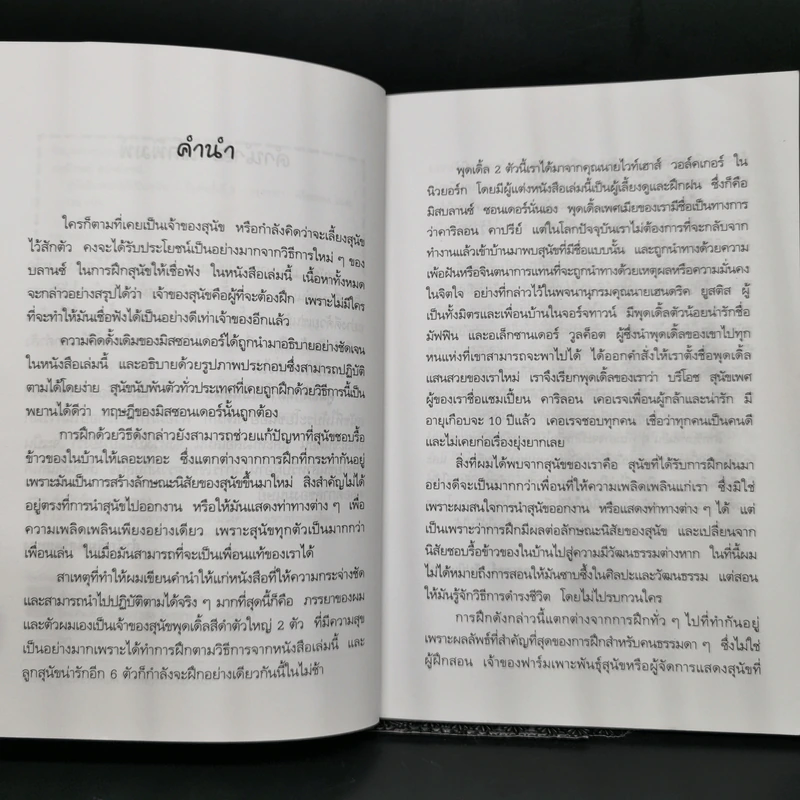 คำนำ
ใครก็ตามที่เคยเป็นเจ้าของสุนัข หรือกำลังคิดว่าจะเลี้ยงสุนัข
ไว้สักตัว คงจะได้รับประโยชน์เป็นอย่างมากจากวิธีการใหม่ ๆ ของ
บลานซ์ ในการฝึกสุนัขให้เชื่อฟัง ในหนังสือเล่มนี้ เนื้อหาทั้งหมด
จะกล่าวอย่างสรุปได้ว่า เจ้าของสุนัขคือผู้ที่จะต้องฝึก เพราะไม่มีใคร
ที่จะทำให้มันเชื่อฟังได้เป็นอย่างดีเท่าเจ้าของอีกแล้ว
ความคิดดั้งเดิมของมิสซอนเดอร์ได้ถูกนำมาอธิบายอย่างชัดเจน
ในหนังสือเล่มนี้ และอธิบายด้วยรูปภาพประกอบซึ่งสามารถปฏิบัติ
ตามได้โดยง่าย สุนัขนับพันตัวทั่วประเทศที่เคยถูกฝึกด้วยวิธีการนี้เป็น
พยานได้ดีว่า ทฤษฎีของมิสซอนเดอร์นั้นถูกต้อง
การฝึกด้วยวิธีดังกล่าวยังสามารถช่วยแก้ปัญหาที่สุนัขชอบรื้อ
ข้าวของในบ้านให้เลอะเทอะ ซึ่งแตกต่างจากการฝึกที่กระทำกันอยู่
เพราะมันเป็นการสร้างลักษณะนิสัยของสุนัขขึ้นมาใหม่ สิ่งสำคัญไม่ได้
อยู่ตรงที่การนำสุนัขไปออกงาน หรือให้มันแสดงท่าทางต่าง ๆ เพื่อ
ความเพลิดเพลินเพียงอย่างเดียว เพราะสุนัขทุกตัวเป็นมากกว่า
เพื่อนเล่น ในเมื่อมันสามารถที่จะเป็นเพื่อนแท้ของเราได้
สาเหตุที่ทำให้ผมเขียนคำนำให้แก่หนังสือที่ให้ความกระจ่างชัด
และสามารถนำไปปฏิบัติตามได้จริง ๆ มากที่สุดนี้ก็คือ ภรรยาของผม
และตัวผมเองเป็นเจ้าของสุนัขพุดเดิ้ลสีดำตัวใหญ่ 2 ตัว ที่มีความสุข
เป็นอย่างมากเพราะได้ทำการฝึกตามวิธีการจากหนังสือเล่มนี้ และ
ลูกสุนัขน่ารักอีก 6 ตัวก็กำลังจะฝึกอย่างเดียวกันนี้ในไม่ช้า
พุดเดิ้ล 2 ตัวนี้เราได้มาจากคุณนายไวท์เฮาส์ วอล์คเกอร์ ใน
นิวยอร์ก โดยมีผู้แต่งหนังสือเล่มนี้เป็นผู้เลี้ยงดูและฝึกฝน ซึ่งก็คือ
มิสบลานซ์ ซอนเดอร์นั่นเอง พุดเดิ้ลเพศเมียของเรามีชื่อเป็นทางการ
ว่าคาริลอน คาปรีย์ แต่ในโลกปัจจุบันเราไม่ต้องการที่จะกลับจาก
ทำงานแล้วเข้าบ้านมาพบสุนัขที่มีชื่อแบบนั้น และถูกนำทางด้วยความ
เพ้อฝันหรือจินตนาการแทนที่จะถูกนำทางด้วยเหตุผลหรือความมั่นคง
ในจิตใจ อย่างที่กล่าวไว้ในพจนานุกรมคุณนายเฮนดริค ยูสติส ผู้
เป็นทั้งมิตรและเพื่อนบ้านในจอร์จทาวน์ มีพุดเดิ้ลตัวน้อยน่ารักชื่อ
มัฟฟิน และอเล็กซานเดอร์ วูลค็อต ผู้ซึ่งนำพุดเดิ้ลของเขาไปทุก
หนแห่งที่เขาสามารถจะพาไปได้ ได้ออกคำสั่งให้เราตั้งชื่อพุดเดิ้ล
แสนสวยของเราใหม่ เราจึงเรียกพุดเดิ้ลของเราว่า บรีโอช สุนัขเพศ
ผู้ของเราชื่อแชมเปี้ยน คาริลอน เคอเรจเพื่อนผู้กล้าและน่ารัก มี
อายุเกือบจะ 10 ปีแล้ว เคอเรจชอบทุกคน เชื่อว่าทุกคนเป็นคนดี
และไม่เคยก่อเรื่องยุ่งยากเลย
สิ่งที่ผมได้พบจากสุนัขของเราคือ สุนัขที่ได้รับการฝึกฝนมา
อย่างดีจะเป็นมากกว่าเพื่อนที่ให้ความเพลิดเพลินแก่เรา ซึ่งมิใช่
เพราะผมสนใจการนำสุนัขออกงาน หรือแสดงท่าทางต่าง ๆ ได้ แต่
เป็นเพราะว่าการฝึกมีผลต่อลักษณะนิสัยของสุนัข และเปลี่ยนจาก
นิสัยชอบรื้อข้าวของในบ้านไปสู่ความมีวัฒนธรรมต่างหาก ในที่นี้ผม
ไม่ได้หมายถึงการสอนให้มันซาบซึ้งในศิลปะและวัฒนธรรม แต่สอน
ให้มันรู้จักวิธีการดำรงชีวิต โดยไม่ไปรบกวนใคร
การฝึกดังกล่าวนี้แตกต่างจากการฝึกทั่ว ๆ ไปที่ทำกันอยู่
เพราะผลลัพธ์ที่สำคัญที่สุดของการฝึกสำหรับคนธรรมดา ๆ ซึ่งไม่ใช่
ผู้ฝึกสอน เจ้าของฟาร์มเพาะพันธุ์สุนัขหรือผู้จัดการแสดงสุนัขที่